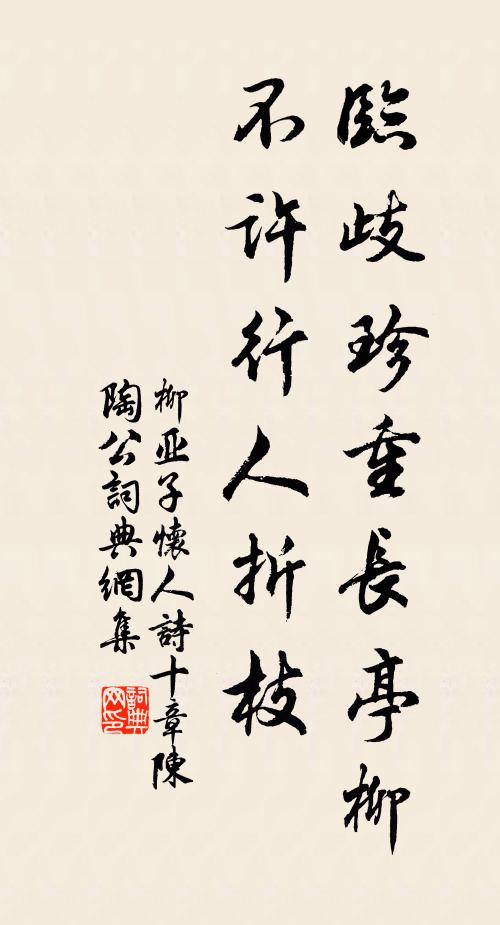 臨歧珍重長亭柳
不許行人折枝
柳亚子懷人詩十章陳
陶公詞典網集
詞典
网印